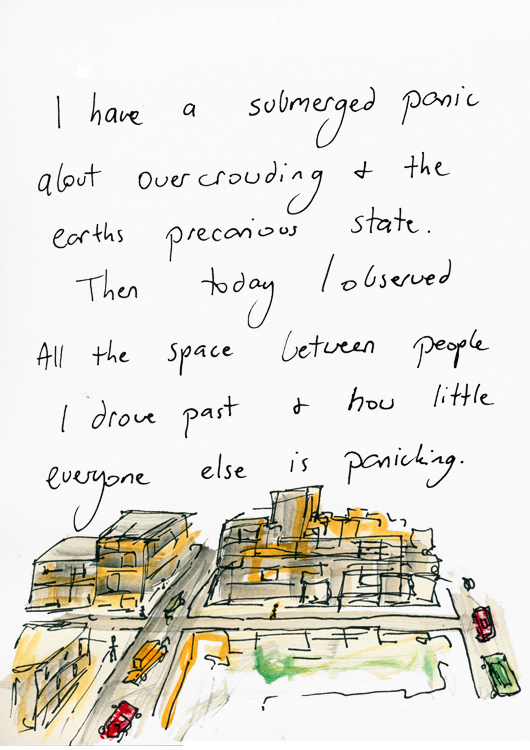 I have a submerged panic
about overcrowding & the
earths precarious state.
Then today I observed
All the space between people
I drove past & how little
everyone else is panicking.